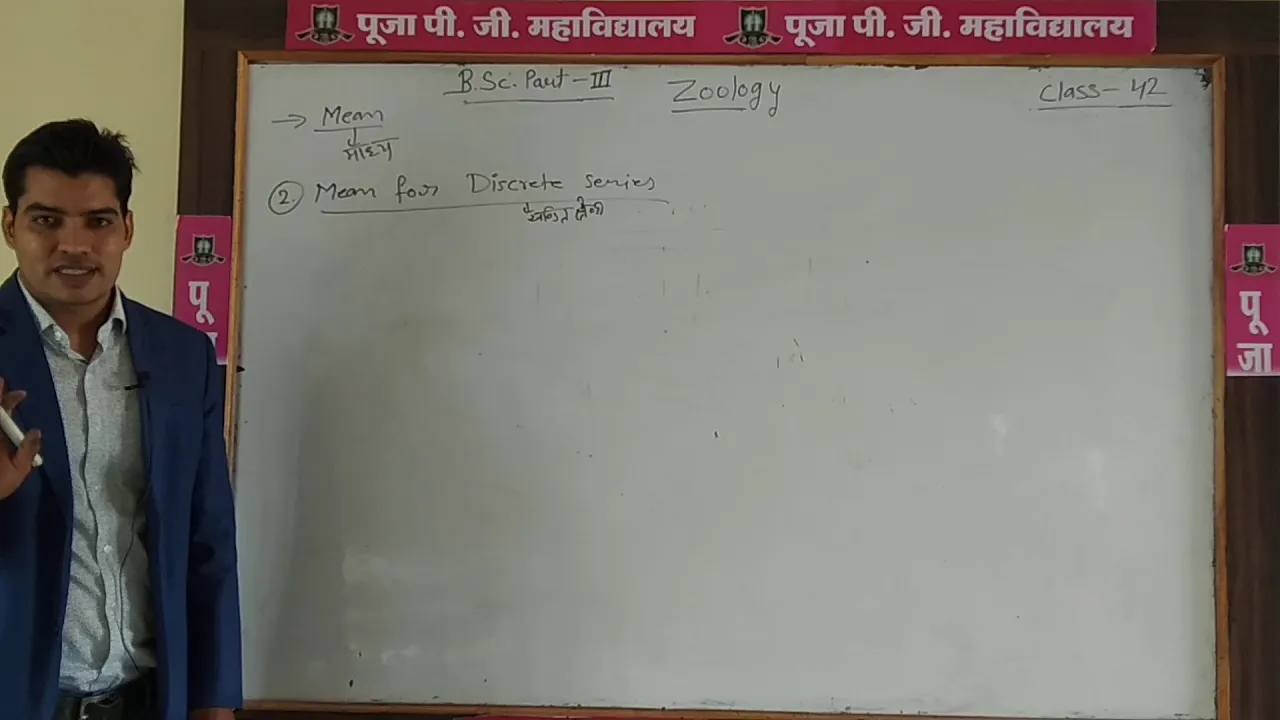 पूजा पी. जी. महाविद्यालय पूजा पी. जी. महाविद्यालय
B.Sc. Part-III Zoology Class-42
→ Mean
माध्य
② Mean for Discrete series
खण्डित श्रेणी
पू
पू
जा